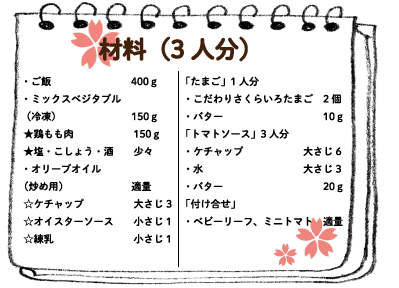 材料（3人分）
・ご飯　400g
・ミックスベジタブル
（冷凍）　150g
★鶏もも肉　150g
★塩・こしょう・酒　少々
・オリーブオイル
（炒め用）　適量
☆ケチャップ　大さじ3
☆オイスターソース　小さじ1
☆練乳　小さじ1
「たまご」1人分
・こだわりさくらいろたまご　2個
・バター　10g
「トマトソース」3人分
・ケチャップ　大さじ6
・水　大さじ3
・バター　20g
「付け合せ」
・ベビーリーフ、ミニトマト　適量